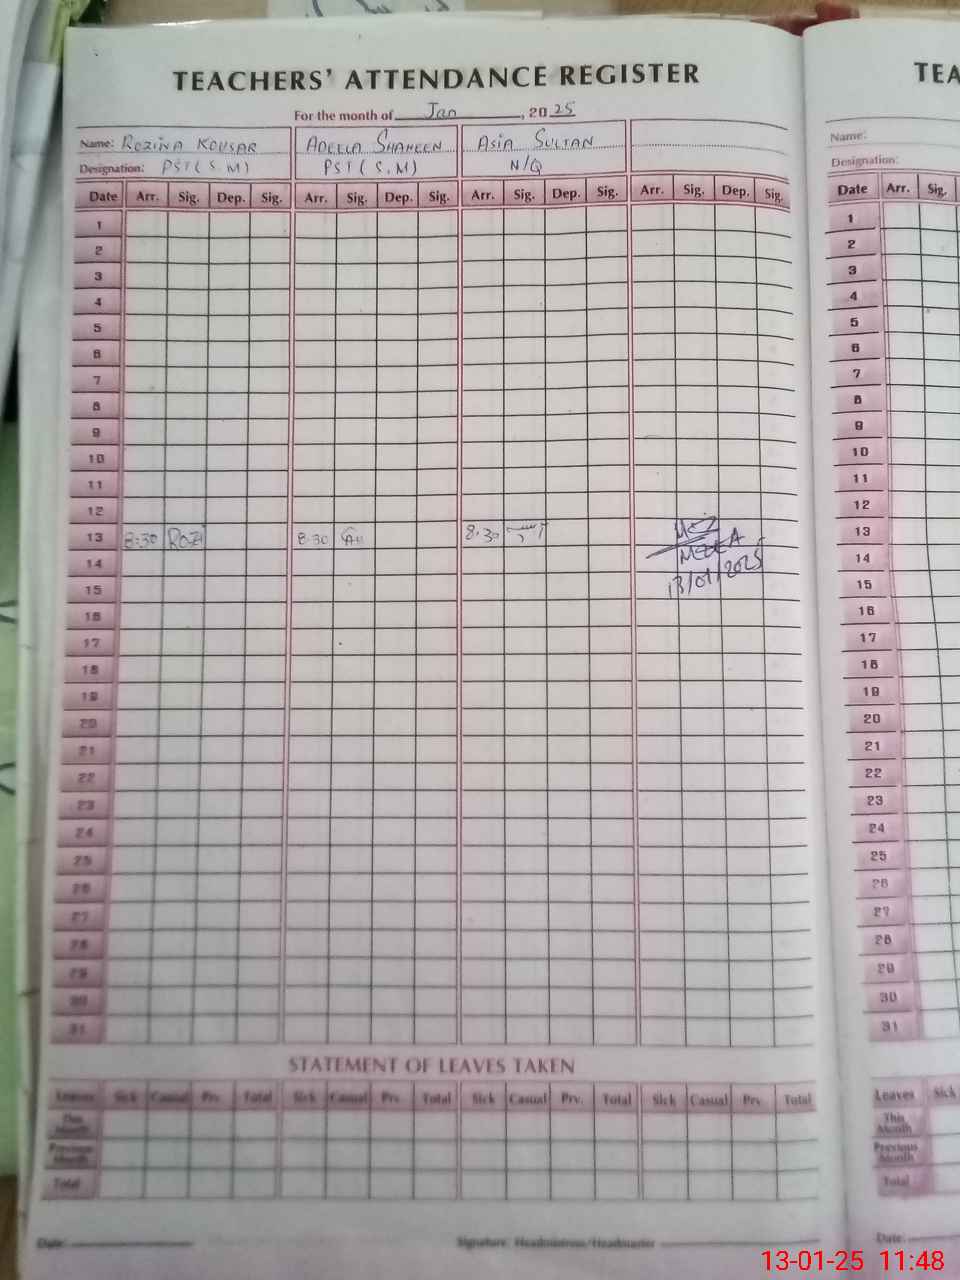 TEACHERS' ATTENDANCE REGISTER
For the month of Jan, 2025
Name: ROZINA KOUSAR ADEELA SHAHEEN ASIA SULTAN
Designation: PST (S.M) PST (S.M) N/Q
Date Arr. Sig. Dep. Sig. Arr. Sig. Dep. Sig. Arr. Sig. Dep. Sig. Arr. Sig. Dep. Sig.
1
2
3
4
5
6
7
8
9
10
11
12
13 8:30 ROZI 8:30 8:30
14
15 13/01/2025
16
17
18
19
20
21
22
23
24
25
26
27
28
29
30
31
STATEMENT OF LEAVES TAKEN
Leaves Sick Casual Prv. Total Sick Casual Prv. Total Sick Casual Prv. Total Sick Casual Prv. Total
This Month
Previous Month
Total
Date: Signature: Headmistress/Headmaster
TEA
Name:
Designation:
Date Arr. Sig.
1
2
3
4
5
6
7
8
9
10
11
12
13
14
15
16
17
18
19
20
21
22
23
24
25
26
27
28
29
30
31
Leaves Sick
This Month
Previous Month
Total
Date:
13-01-25 11:48